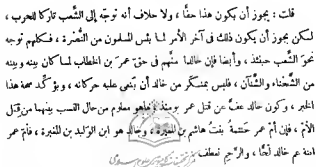 قلت : يجوز أن يكون هذا حقا ، ولا خلاف أنه توجه إلى الشعب تاركا للحرب ،
لكن يجوز أن يكون ذلك فى آخر الأمر لما يئس المسلمون من النصرة ، فكلهم توجه
نحو الشعب حينئذ ، وأيضا فإن خالدا متهم فى حق عمر بن الخطاب لما كان بينه وبينه
من الشحناء والشنآن ، فليس بمنكر من خالد أن ينعى عليه حركاته ، ويؤكد صحة هذا
الخبر ، وكون خالد عف عن قتل عمر يومئذ ، ما هو معلوم من حال النسب بينهما من قبل
الأم ، فإن أم عمر حنتمة بنت هاشم بن المغيرة ، وخالد هو ابن الوليد بن المغيرة ، فأم عمر
ابنة عم خالد لحا ، والرحم تعطف